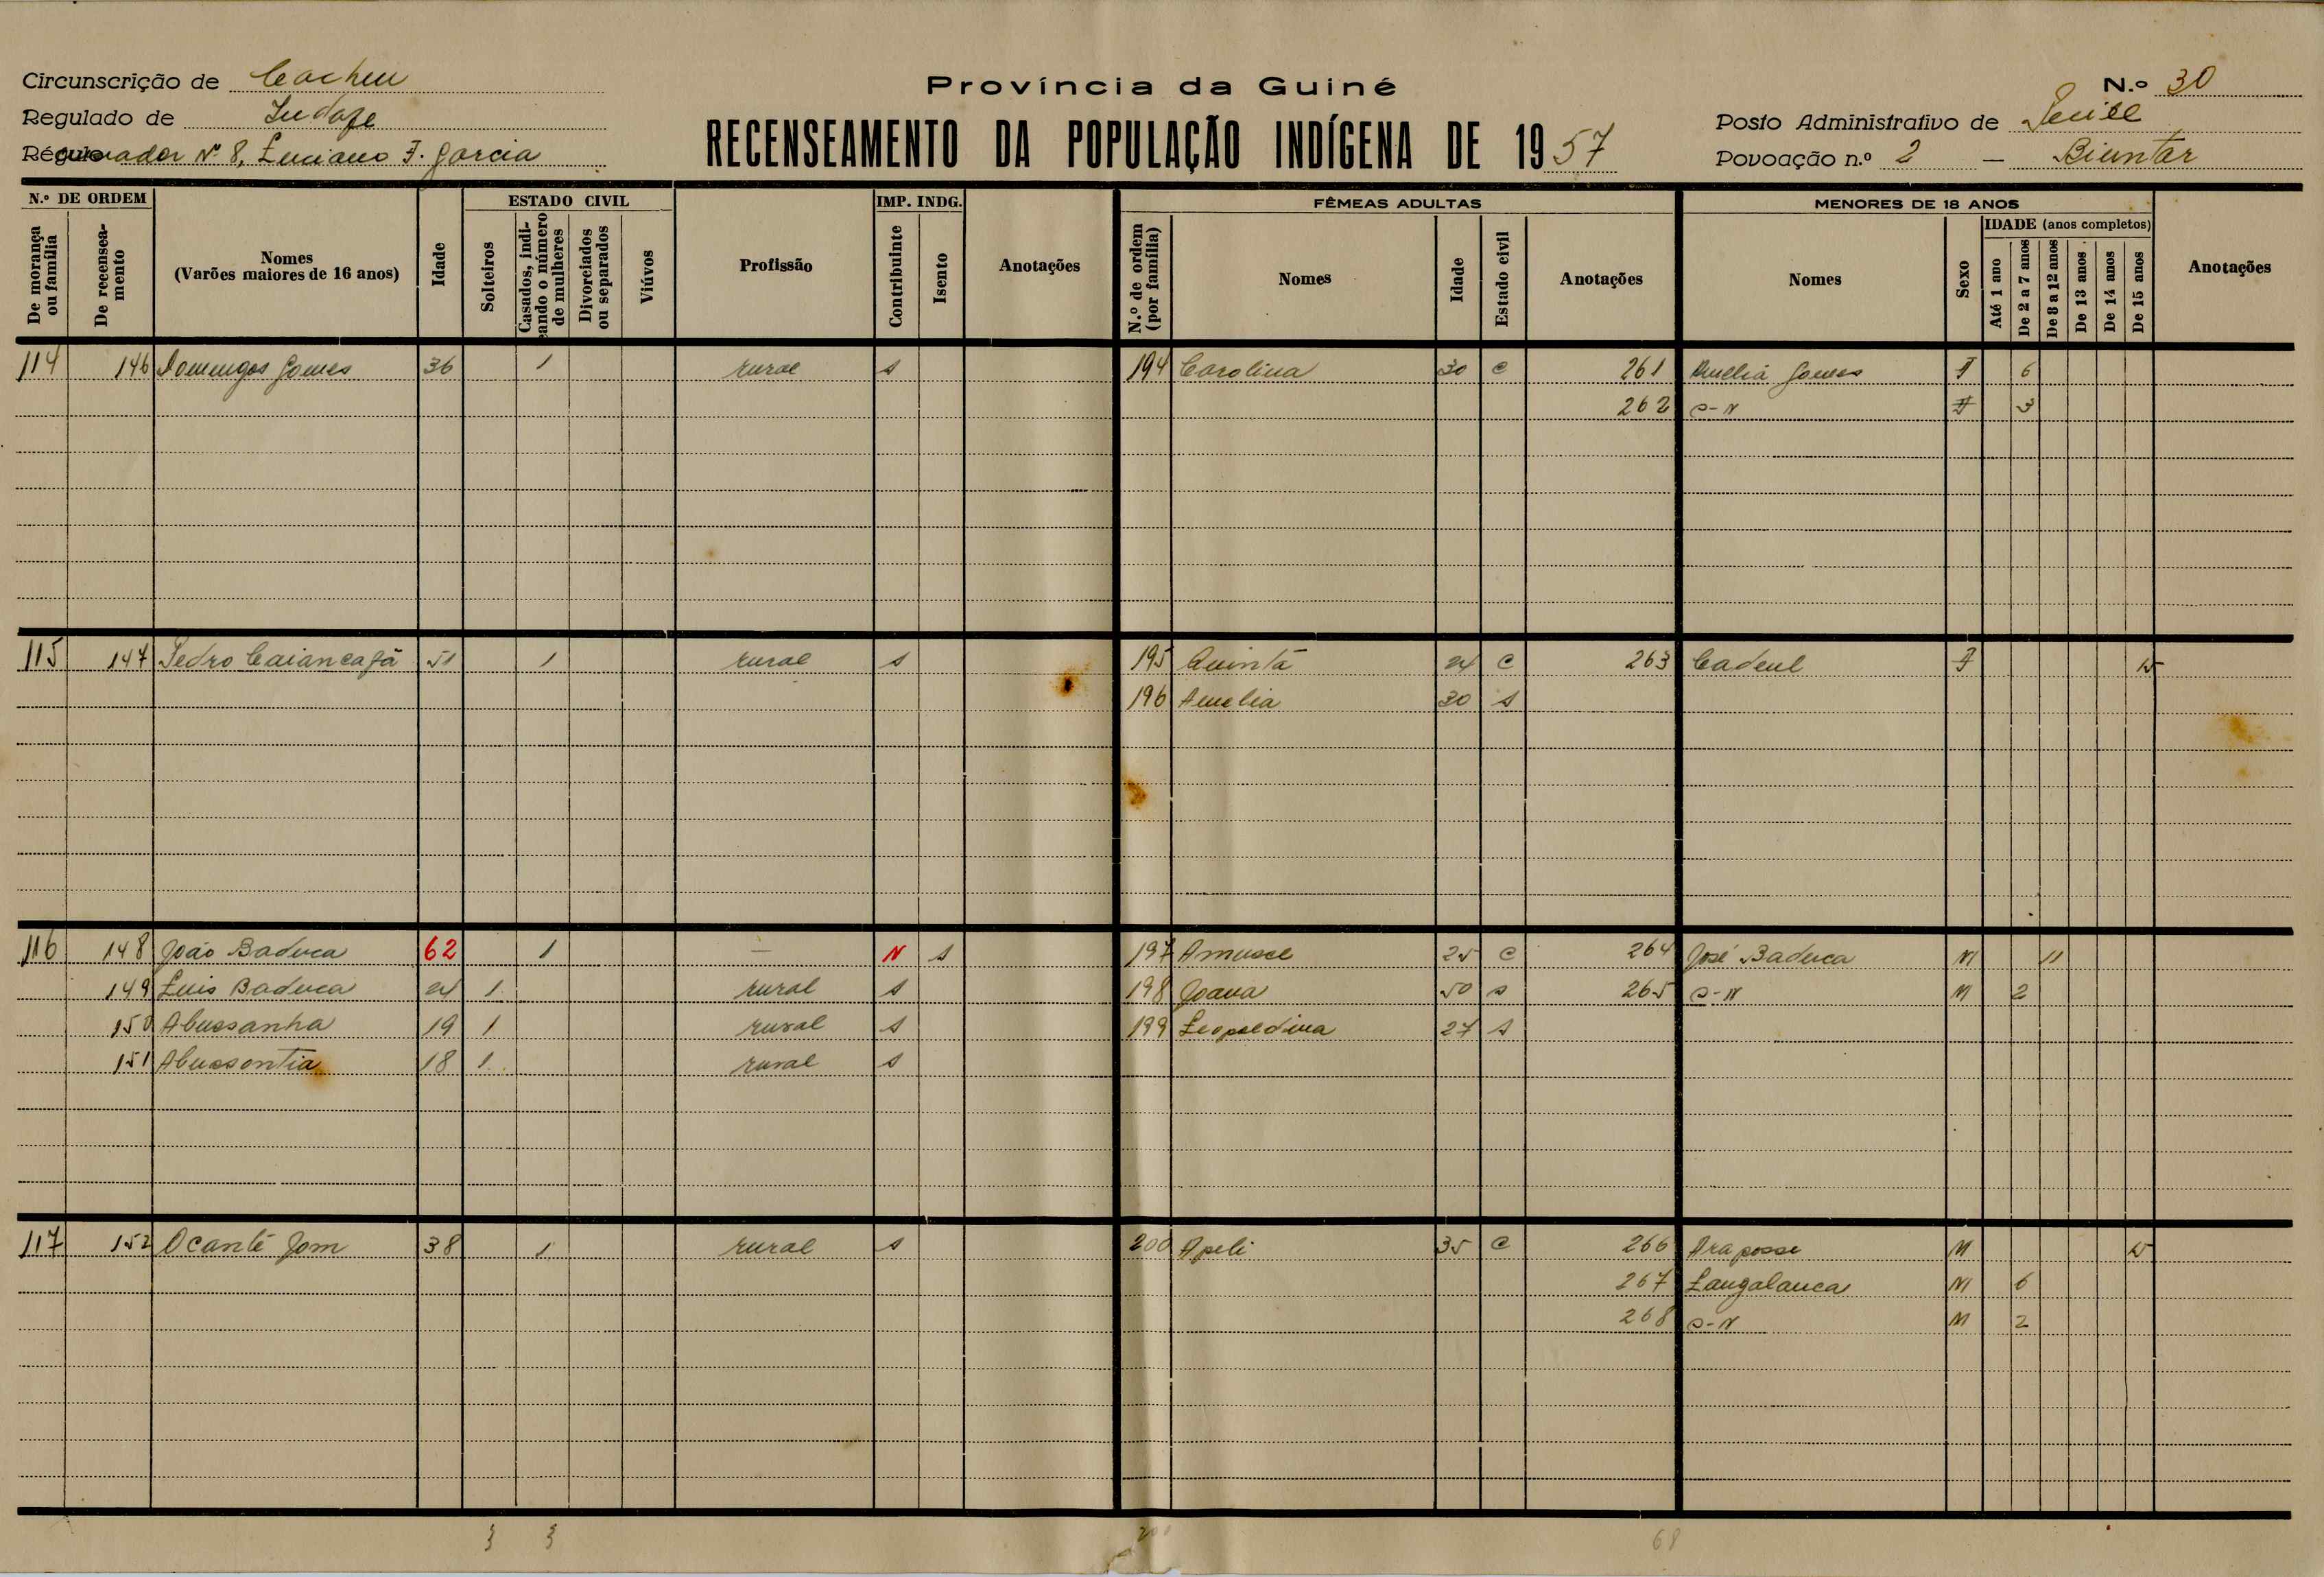 Circunscrição de Cacheu
Província da Guiné
N.º 30
Regulado de
RECENSEAMENTO DA POPULAÇÃO INDÍGENA DE 1957
Posto Administrativo de
Nº 8, Luciano F. Garcia
Povoação n.º 2 — Biantar
N.º DE ORDEM
De morança ou família
De recenseamento
Nomes
(Varões maiores de 16 anos)
Idade
ESTADO CIVIL
Solteiros
Casados, indicando o número de mulheres
Divorciados ou separados
Viúvos
Profissão
IMP. INDG.
Contribuinte
Isento
Anotações
FÊMEAS ADULTAS
N.º de ordem (por família)
Nomes
Idade
Estado civil
Anotações
MENORES DE 18 ANOS
Nomes
Sexo
IDADE (anos completos)
Até 1 ano
De 2 a 7 anos
De 8 a 12 anos
De 13 anos
De 14 anos
De 15 anos
Anotações
114 146 Domingos Gomes 36 1 rural s 194 Carolina 30 C 261 Amelia Gomes F 6
262 s-N F 3
115 147 Pedro Caiancafá 51 1 rural s 195 Quintá C 263 Cadeul F 15
196 Amelia 30 s
116 148 João Baduca 62 1 — N s 197 Amusce 25 C 264 José Baduca M 11
149 Luis Baduca 1 rural s 198 Joana 50 s 265 s-N M 2
150 Abussanha 19 1 rural s 199 Leopoldina 27 s
151 Abussontia 18 1 rural s
117 152 Ocanté Jom 38 1 rural s 200 Apeli 35 C 266 Araposse M 15
267 Langalanca M 6
268 s-N M 2
3 3 200 68